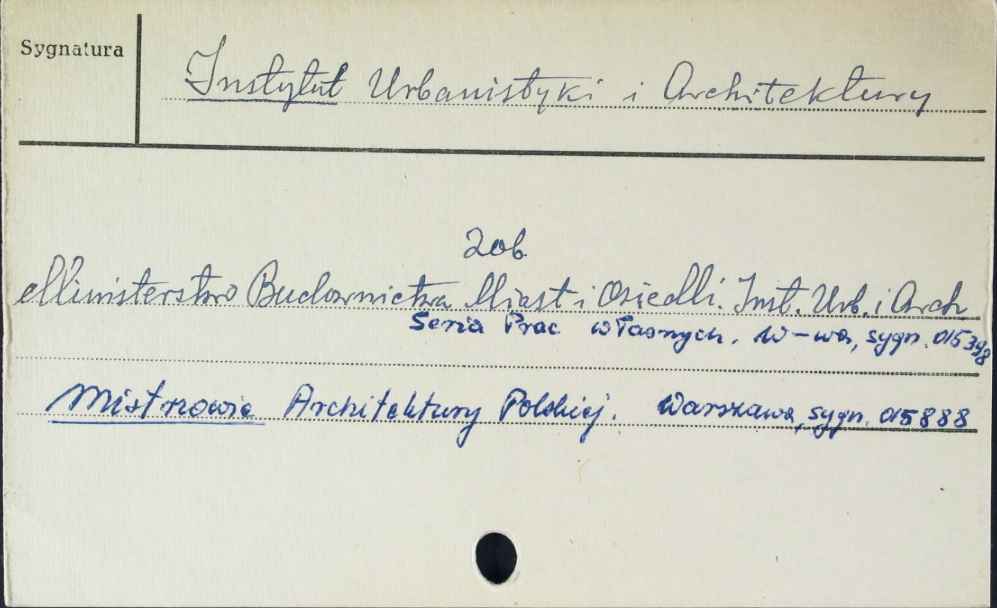 Sygnatura
Instytut Urbanistyki i Architektury
Zob.
Ministerstwo Budownictwa Miast i Osiedli. Inst. Urb. i Arch
Seria Prac własnych. W-wa, sygn. 015398
Mistrzowie Architektury Polskiej. Warszawa, sygn. 015888